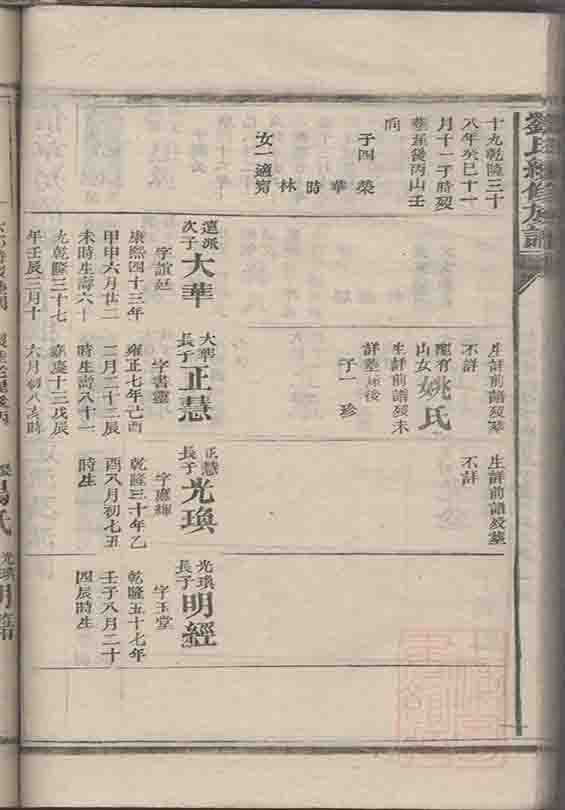 劉氏續修族譜
十九乾隆三十
八年癸巳十一
月十一子時殁
葬後丙山壬
向
子四榮
華
時
林
女一適甯
生詳前譜殁葬
不詳
龍有
山女姚氏
生詳前譜殁未
詳葬後
子一珍
生詳前譜殁葬
不詳
遠派
次子大華
字誼延
康熙四十三年
甲申六月廿二
未時生壽六十
九乾隆三十七
年壬辰三月十
大華
長子正慧
字書靈
雍正七年己酉
二月二十二辰
時生壽八十一
嘉慶十三戊辰
六月初八亥時
正慧
長子光瑛
字應輝
乾隆三十年乙
酉八月初七丑
時生
光瑛
長子明經
字玉堂
乾隆五十七年
壬子八月二十
四辰時生